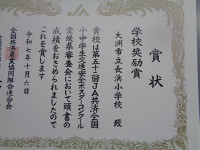 賞状
学校奨励賞
大洲市立長浜小学校 殿
貴校は第五十二回JA共済全国
小・中学生交通安全ポスターコンクール
愛媛県審査会において頭書の
成績をおさめられましたので
これを賞します
令和七年十月六日
全国共済農業協同組合連合会